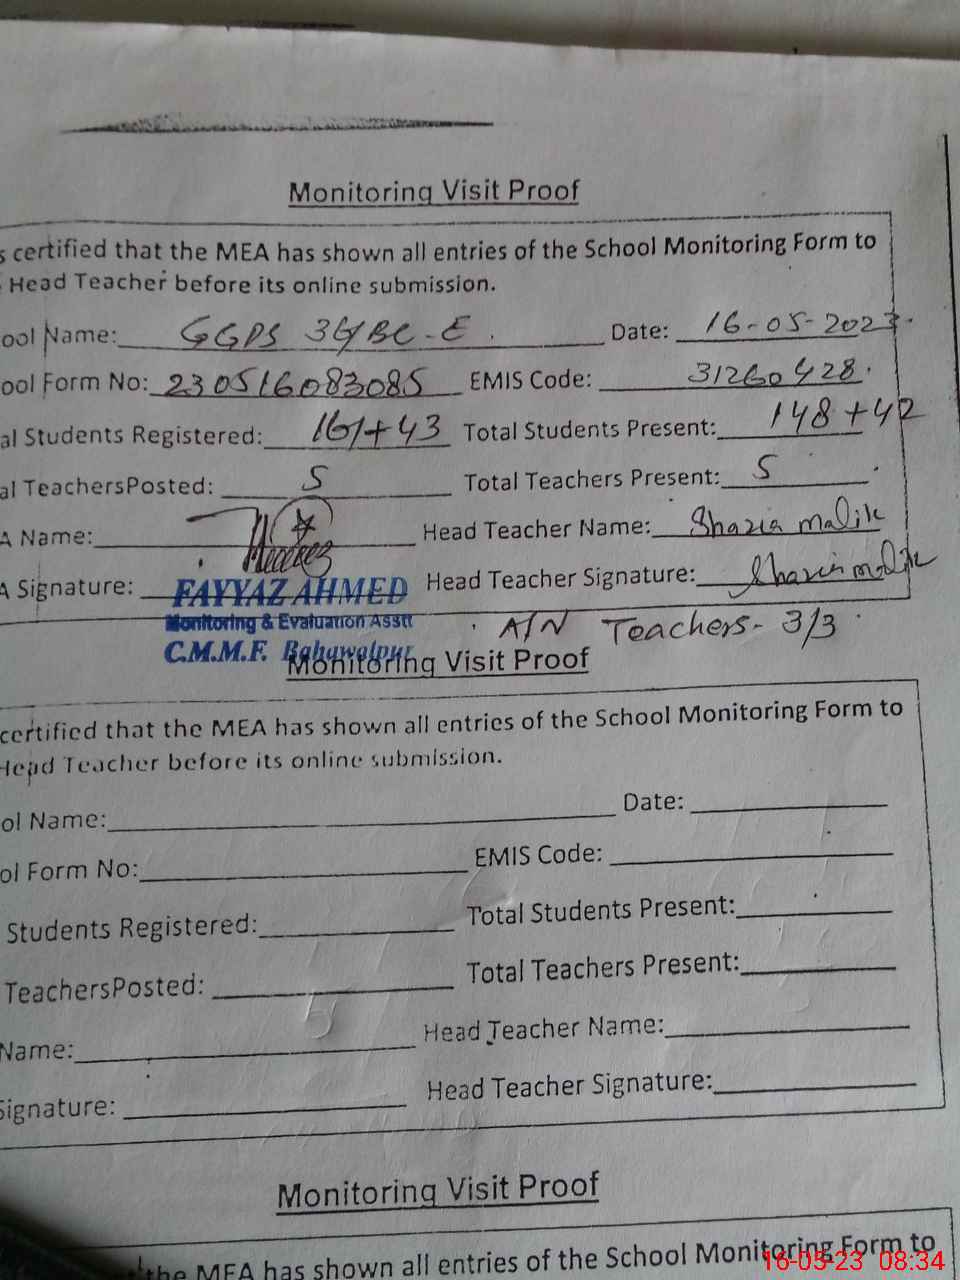 Monitoring Visit Proof
s certified that the MEA has shown all entries of the School Monitoring Form to
Head Teacher before its online submission.
ool Name: GGPS 34/BC-E Date: 16-05-2023
ool Form No: 230516083085 EMIS Code: 31260428
al Students Registered: 161+43 Total Students Present: 148+42
al TeachersPosted: 5 Total Teachers Present: 5
A Name: Head Teacher Name: Shazia malik
A Signature: Head Teacher Signature: Shazia malik
FAYYAZ AHMED
Monitoring & Evaluation Asstt
C.M.M.F. Bahawalpur
A/N Teachers- 3/3
Monitoring Visit Proof
certified that the MEA has shown all entries of the School Monitoring Form to
Head Teacher before its online submission.
ol Name: Date:
ol Form No: EMIS Code:
Students Registered: Total Students Present:
TeachersPosted: Total Teachers Present:
Name: Head Teacher Name:
Signature: Head Teacher Signature:
Monitoring Visit Proof
the MEA has shown all entries of the School Monitoring Form to
16-05-23 08:34